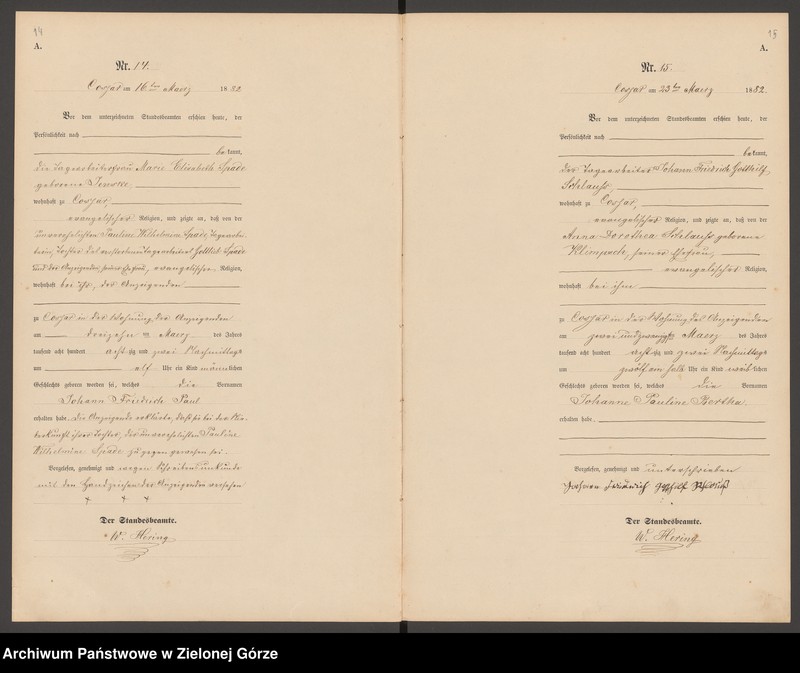 14
A.
Nr. 14.
Cossar am 16ten Maerz 1882
Vor dem unterzeichneten Standesbeamten erschien heute, der
Persönlichkeit nach
bekannt,
die Tagearbeiterfrau Marie Elisabeth Spade
geborene
wohnhaft zu Cossar,
evangelischer Religion, und zeigte an, daß von der
unverehelichten Pauline Wilhelmine Spade,
Tochter des verstorbenen Tagearbeiters Gottlieb Spade
und der Anzeigenden, seiner Ehefrau, evangelischer Religion,
wohnhaft bei ihr, der Anzeigenden
zu Cossar in der Wohnung der Anzeigenden
am dreizehn ten Maerz des Jahres
tausend acht hundert achtzig und zwei Nachmittags
um elf Uhr ein Kind männlichen
Geschlechts geboren worden sei, welches die Vornamen
Johann Friedrich Paul
erhalten habe. Die Anzeigende erklärte, daß sie bei der Nie-
derkunft ihrer Tochter, der unverehelichten Pauline
Wilhelmine Spade zugegen gewesen sei.
Vorgelesen, genehmigt und wegen Schreibensunkunde
mit den Handzeichen der Anzeigenden versehen
+ + +
Der Standesbeamte.
W. Hering
15
A.
Nr. 15.
Cossar am 23ten Maerz 1882.
Vor dem unterzeichneten Standesbeamten erschien heute, der
Persönlichkeit nach
bekannt,
der Tagearbeiter Johann Friedrich Gotthilf
wohnhaft zu Cossar,
evangelischer Religion, und zeigte an, daß von der
Anna Dorothea geborene
seiner Ehefrau,
evangelischer Religion,
wohnhaft bei ihm
zu Cossar in der Wohnung des Anzeigenden
am zwei und zwanzigsten Maerz des Jahres
tausend acht hundert achtzig und zwei Nachmittags
um zwölf ein halb Uhr ein Kind weiblichen
Geschlechts geboren worden sei, welches die Vornamen
Johanne Pauline Bertha
erhalten habe.
Vorgelesen, genehmigt und unterschrieben
Johann Friedrich Gotthilf
Der Standesbeamte.
W. Hering
Archiwum Państwowe w Zielonej Górze